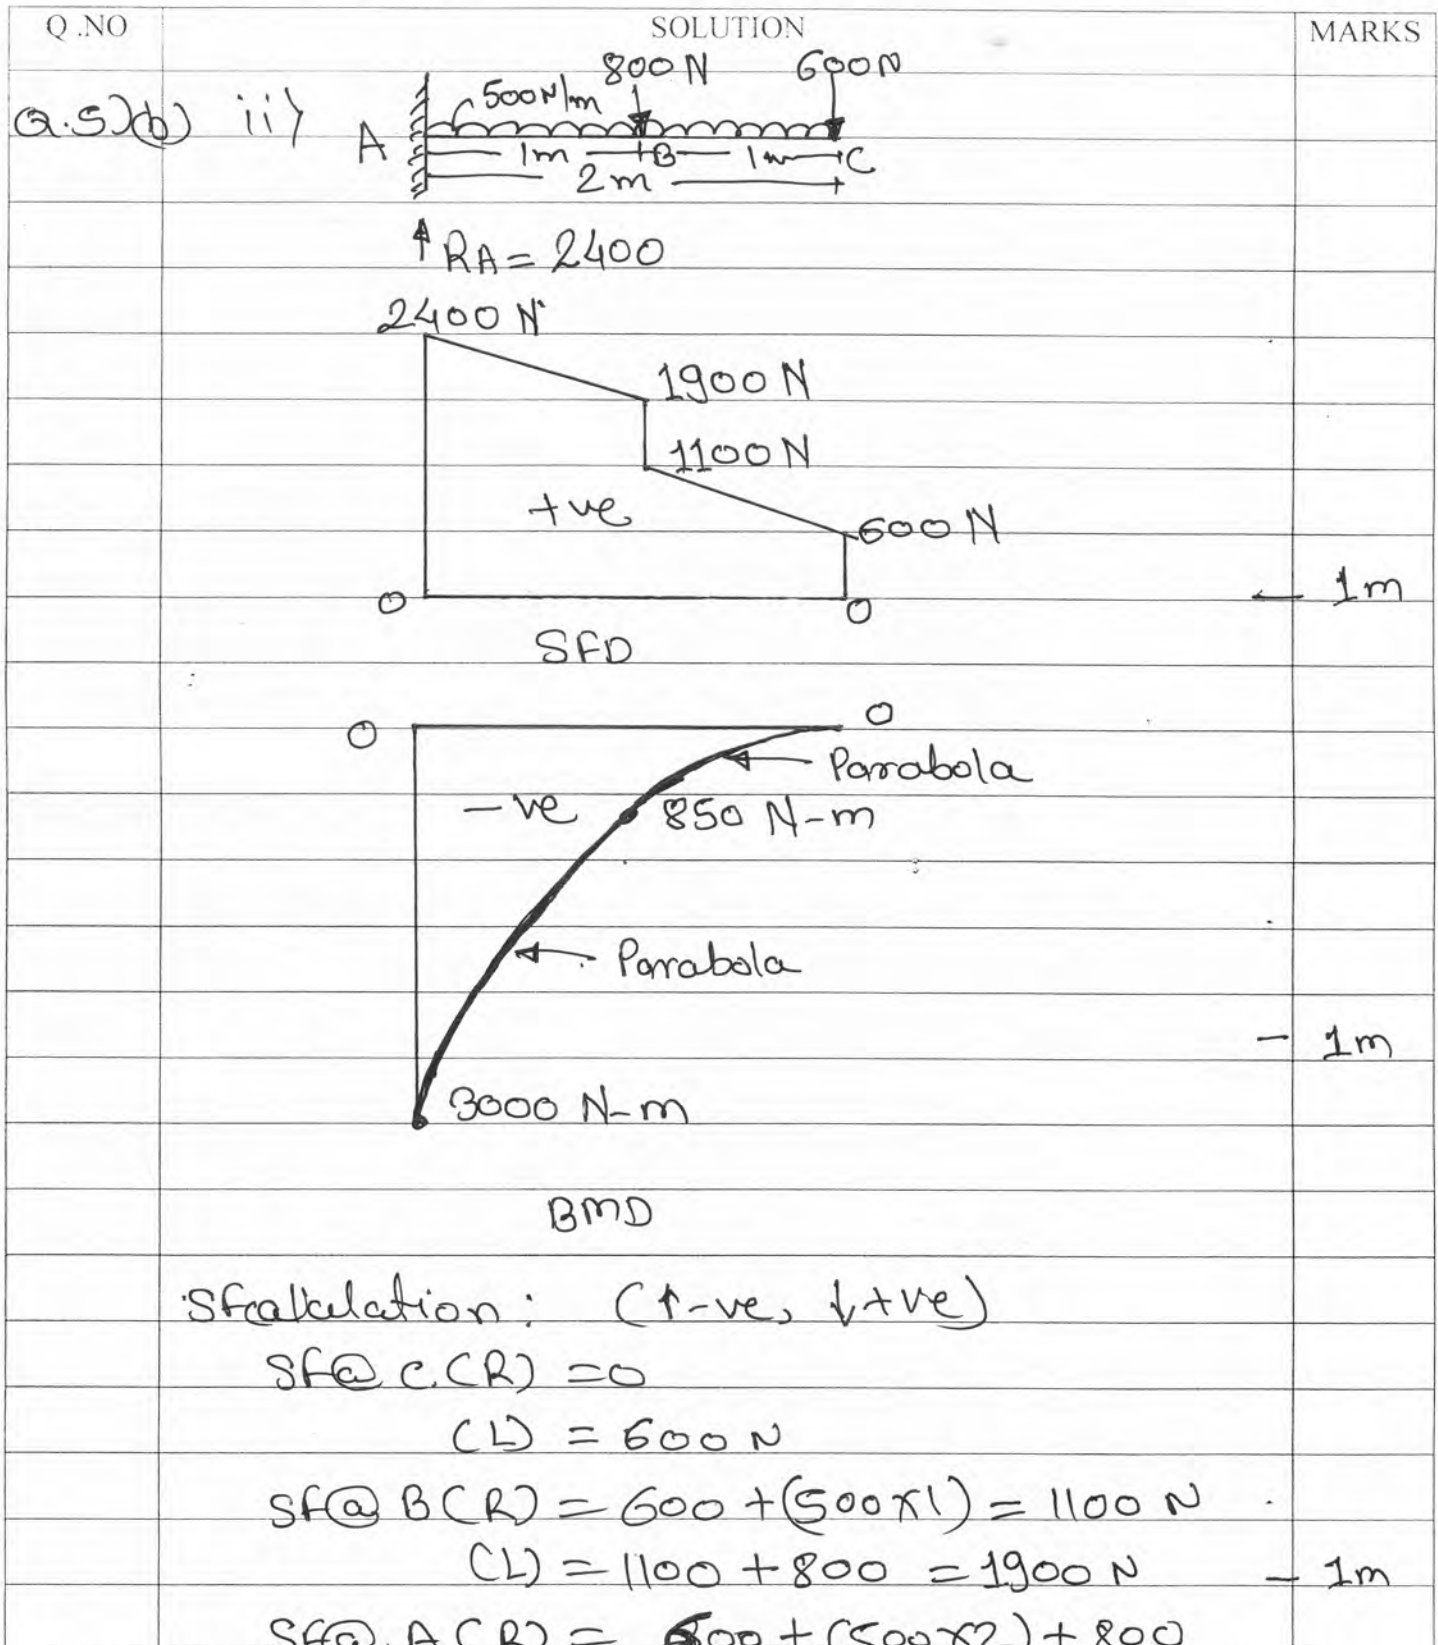 Q .NO SOLUTION MARKS
800 N 600 N
Q.5)(b) ii) 500 N/m
A 1m B 1m C
2m
RA = 2400
2400 N
1900 N
1100 N
+ve 600 N
0 0 ← 1m
SFD
0 0
Parabola
-ve 850 N-m
Parabola
- 1m
3000 N-m
BMD
SF calculation : (↑-ve, ↓+ve)
SF@ C.(R) = 0
(L) = 600 N
SF@ B(R) = 600 + (500×1) = 1100 N
(L) = 1100 + 800 = 1900 N - 1m
SF@ A(R) = 600 + (500×2) + 800